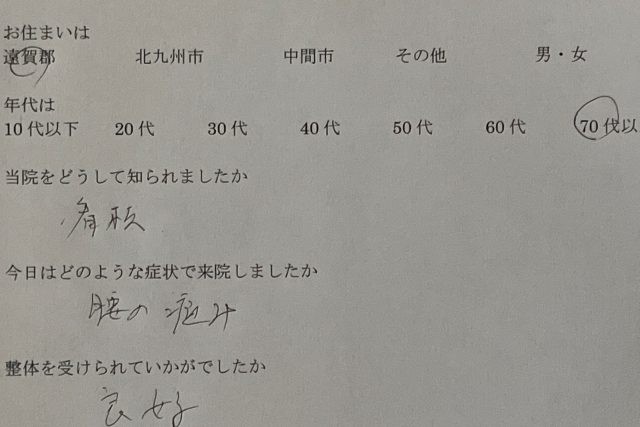 お住まいは
遠賀郡 北九州市 中間市 その他 男・女
年代は
10代以下 20代 30代 40代 50代 60代 70代以
当院をどうして知られましたか
看板
今日はどのような症状で来院しましたか
腰の痛み
整体を受けられていかがでしたか
良好